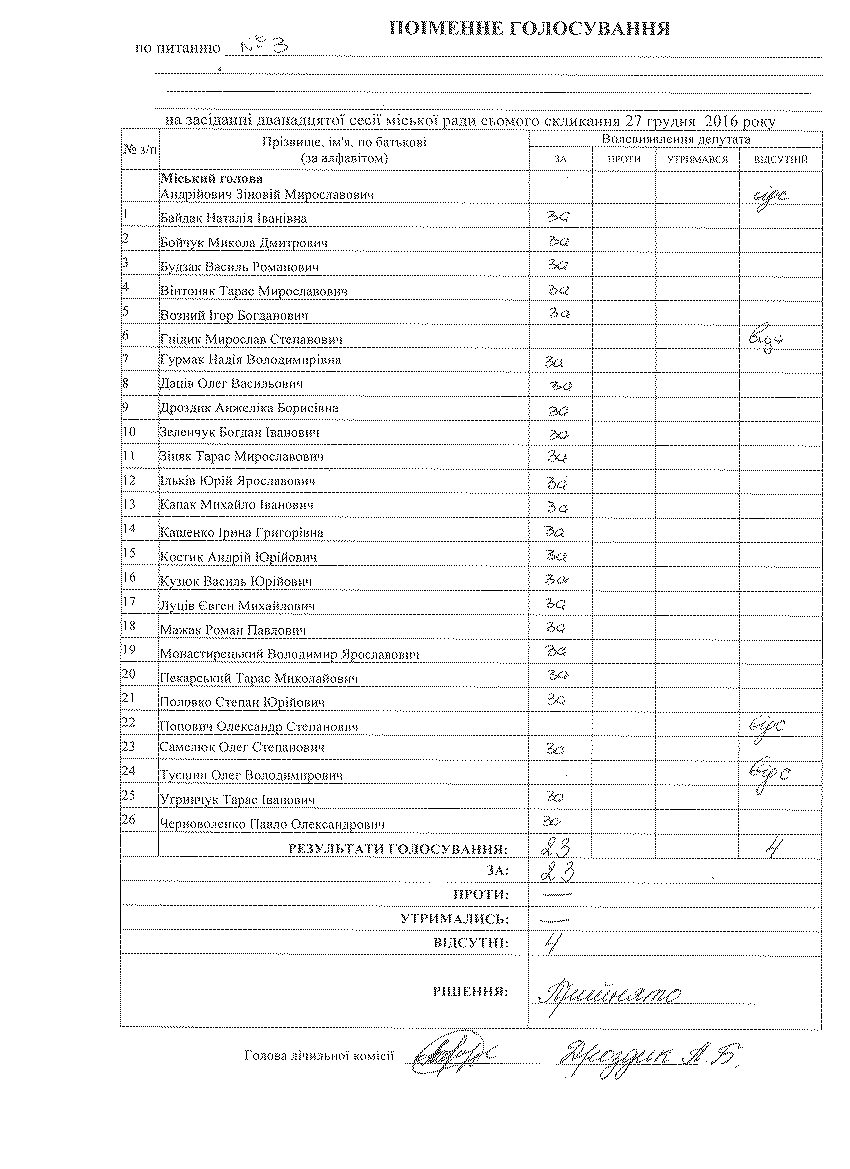 ПОІМЕННЕ ГОЛОСУВАННЯ
по питанню № 3
на засіданні дванадцятої сесії міської ради сьомого скликання 27 грудня 2016 року
№ з/п Прізвище, ім'я, по батькові (за алфавітом) Волевиявлення депутата
ЗА ПРОТИ УТРИМАВСЯ ВІДСУТНІЙ
Міський голова
Андрійович Зіновій Мирославович відс
1 Байдак Наталія Іванівна за
2 Бойчук Микола Дмитрович за
3 Будзак Василь Романович за
4 Вінтоняк Тарас Мирославович за
5 Возний Ігор Богданович за
6 Гнідик Мирослав Степанович відс
7 Гурмак Надія Володимирівна за
8 Даців Олег Васильович за
9 Дроздик Анжеліка Борисівна за
10 Зеленчук Богдан Іванович за
11 Зіняк Тарас Мирославович за
12 Ільків Юрій Ярославович за
13 Капак Михайло Іванович за
14 Кащенко Ірина Григорівна за
15 Костик Андрій Юрійович за
16 Кузюк Василь Юрійович за
17 Луців Євген Михайлович за
18 Мажак Роман Павлович за
19 Монастирецький Володимир Ярославович за
20 Пекарський Тарас Миколайович за
21 Половко Степан Юрійович за
22 Попович Олександр Степанович відс
23 Самелюк Олег Степанович за
24 Олег Володимирович відс
25 Угринчук Тарас Іванович за
26 Черноволенко Павло Олександрович за
РЕЗУЛЬТАТИ ГОЛОСУВАННЯ: 23 4
ЗА: 23
ПРОТИ: —
УТРИМАЛИСЬ: —
ВІДСУТНІ: 4
РІШЕННЯ: Прийнято
Голова лічильної комісії Дроздик А.Б.